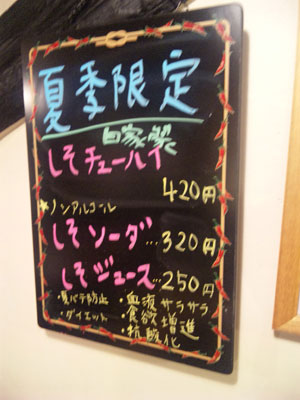 夏季限定
自家製
しそチューハイ
420円
★ノンアルコール
しそソーダ…320円
しそジュース…250円
・夏バテ防止
・ダイエット
・血液サラサラ
・食欲増進
・抗酸化